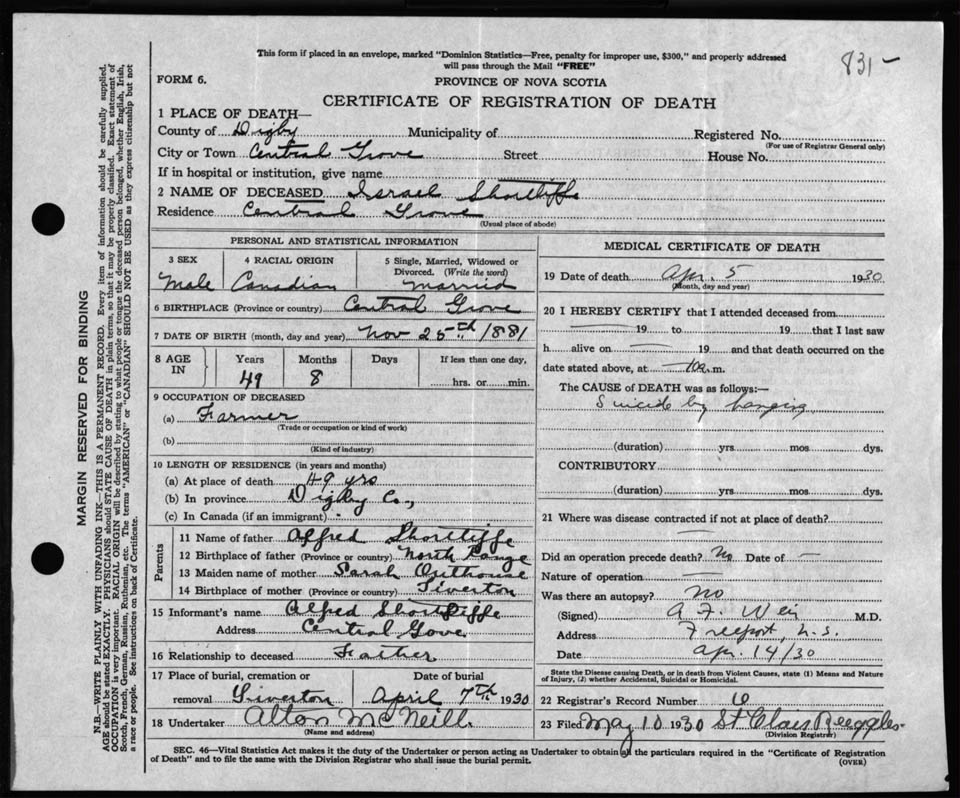 This form if placed in an envelope, marked "Dominion Statistics—Free, penalty for improper use, $300," and properly addressed
will pass through the Mail "FREE"
831-
FORM 6.
PROVINCE OF NOVA SCOTIA
CERTIFICATE OF REGISTRATION OF DEATH
1 PLACE OF DEATH—
County of Digby Municipality of Registered No.
(For use of Registrar General only)
City or Town Central Grove Street House No.
If in hospital or institution, give name
2 NAME OF DECEASED Israel Shortliffe
Residence Central Grove
(Usual place of abode)
PERSONAL AND STATISTICAL INFORMATION
3 SEX 4 RACIAL ORIGIN 5 Single, Married, Widowed or Divorced. (Write the word)
Male Canadian Married
6 BIRTHPLACE (Province or country) Central Grove
7 DATE OF BIRTH (month, day and year) Nov 25th 1881
8 AGE IN Years Months Days If less than one day,
49 8 hrs. or min.
9 OCCUPATION OF DECEASED
(a) Farmer
(Trade or occupation or kind of work)
(b)
(Kind of industry)
10 LENGTH OF RESIDENCE (in years and months)
(a) At place of death 49 yrs
(b) In province Digby Co.,
(c) In Canada (if an immigrant) -
Parents
11 Name of father Alfred Shortliffe
12 Birthplace of father (Province or country) North Range
13 Maiden name of mother Sarah Outhouse
14 Birthplace of mother (Province or country) Tiverton
15 Informant's name Alfred Shortliffe
Address Central Gove
16 Relationship to deceased Father
17 Place of burial, cremation or removal Tiverton Date of burial April 7th 1930
18 Undertaker Alton McNeill
(Name and address)
MEDICAL CERTIFICATE OF DEATH
19 Date of death Apr. 5 1930
(Month, day and year)
20 I HEREBY CERTIFY that I attended deceased from
19 to 19 that I last saw
h alive on 19 and that death occurred on the
date stated above, at 10a.m.
The CAUSE of DEATH was as follows:—
Suicide by hanging
(duration) yrs. mos. dys.
CONTRIBUTORY
(duration) yrs. mos. dys.
21 Where was disease contracted if not at place of death?
Did an operation precede death? No Date of —
Nature of operation —
Was there an autopsy? no
(Signed) A F Weir M.D.
Address Freeport, N.S.
Date Apr. 14/30
State the Disease causing Death, or in death from Violent Causes, state (1) Means and Nature
of Injury, (2) whether Accidental, Suicidal or Homicidal.
22 Registrar's Record Number 6
23 Filed May 10 1930 St Clair Ruggles
(Division Registrar)
SEC. 46—Vital Statistics Act makes it the duty of the Undertaker or person acting as Undertaker to obtain all the particulars required in the "Certificate of Registration
of Death" and to file the same with the Division Registrar who shall issue the burial permit.
(OVER)
MARGIN RESERVED FOR BINDING
N.B.—WRITE PLAINLY WITH UNFADING INK—THIS IS A PERMANENT RECORD. Every item of information should be carefully supplied.
AGE should be stated EXACTLY. PHYSICIANS should STATE CAUSE OF DEATH in plain terms, so that it may be properly classified. Exact statement of
OCCUPATION is very important. RACIAL ORIGIN will be described by stating to what people or tongue the deceased person belonged, whether English, Irish,
Scotch, French, German, Russian, Ruthenian, etc. The terms "AMERICAN" or "CANADIAN" SHOULD NOT BE USED as they express citizenship but not
a race or people. See instructions on back of Certificate.